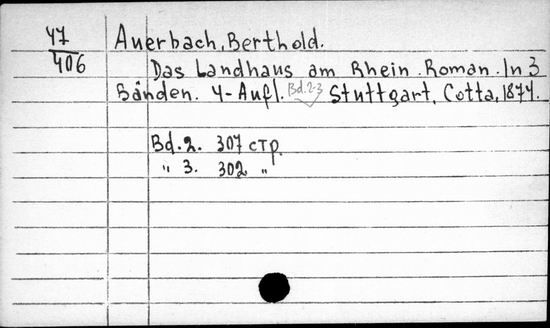 47
406
Auerbach, Berthold.
Das Landhaus am Rhein. Roman. In 3
Bänden. 4-Aufl. Bd.2-3 Stuttgart, Cotta, 1874.
Bd. 2. 307 стр.
" 3. 302 "